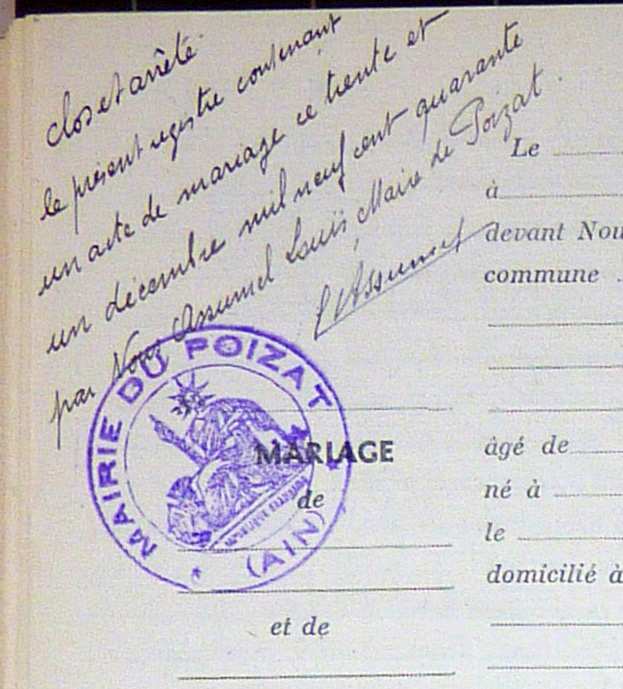 clos et arrêté
le présent registre contenant
un acte de mariage ce trente et
un décembre mil neuf cent quarante
par Nous Assumel Louis, Maire de Poizat.
L Assumel
MAIRIE DU POIZAT
(AIN)
MARIAGE
de
et de
Le
à
devant Nou
commune
âgé de
né à
le
domicilié à